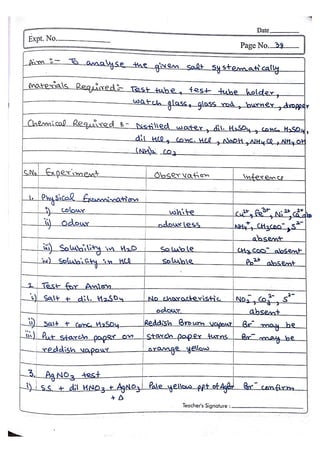 Date
Expt. No.
Page No. 38
Aim :- To analyse the given salt systematically
Materials Required:- Test tube, test tube holder,
watch glass, glass rod, burner, dropper
Chemical Required :- Distilled water, dil. H₂SO₄, conc. H₂SO₄,
dil HCl, conc. HCl, NaOH, NH₄Cl, NH₄OH
(NH₄)₂ CO₃
S.No Experiment Observation Inference
1. Physical Examination
i) colour white Cu²⁺, Fe³⁺, Ni²⁺,
ii) Odour odourless NH₄⁺, CH₃COO⁻, S²⁻
absent
iii) Solubility in H₂O soluble CH₃COO⁻ absent
iv) solubility in HCl soluble Pb²⁺ absent
2. Test for Anion
i) Salt + dil. H₂SO₄ No characteristic NO₂⁻, CO₃²⁻, S²⁻
odour absent
ii) Salt + conc. H₂SO₄ Reddish Brown vapour Br⁻ may be
iii) Put starch paper on starch paper turns Br⁻ may be
reddish vapour orange yellow
3. AgNO₃ test
i) S.E + dil HNO₃ + AgNO₃ Pale yellow ppt of AgBr Br⁻ confirm
+ Δ
Teacher's Signature :